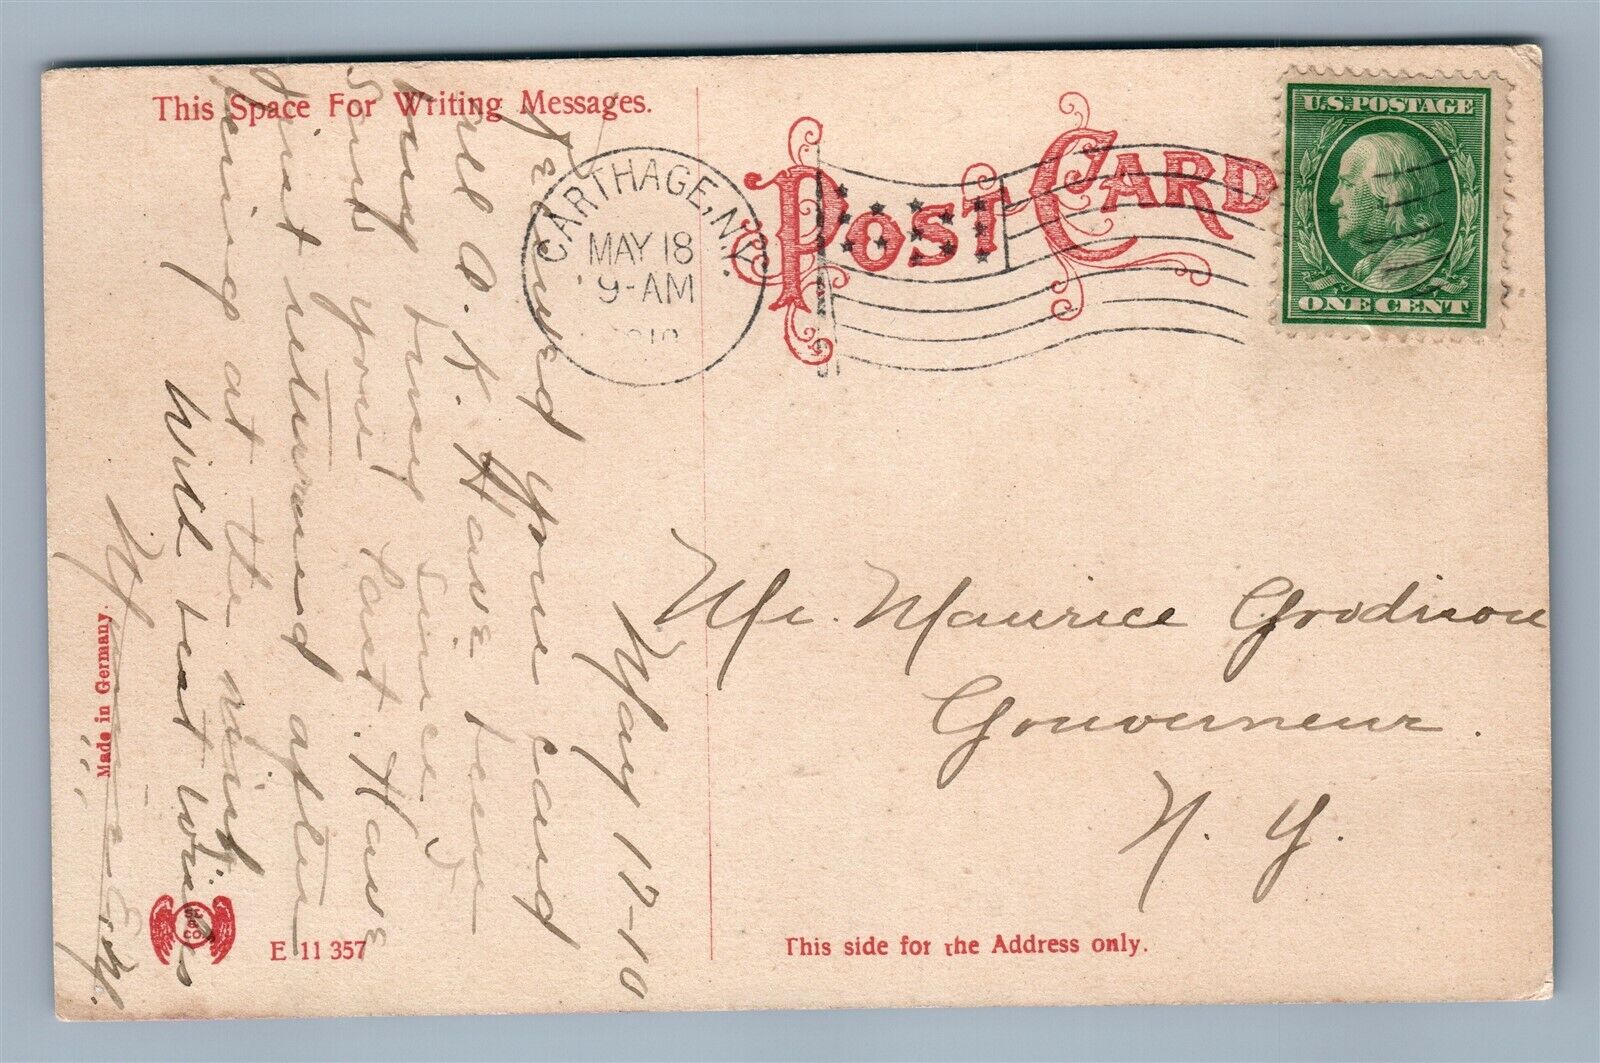 This Space For Writing Messages.
POST CARD
U.S. POSTAGE
ONE CENT
CARTHAGE, N.Y.
MAY 18
9-AM
1910
May 17-10
your card
all O.K. Have been
busy since
your last. Have
just returned after
being at the night
With best wishes
Mr. Maurice Goodison
Gouverneur.
N. Y.
Made in Germany.
E 11 357
This side for the Address only.